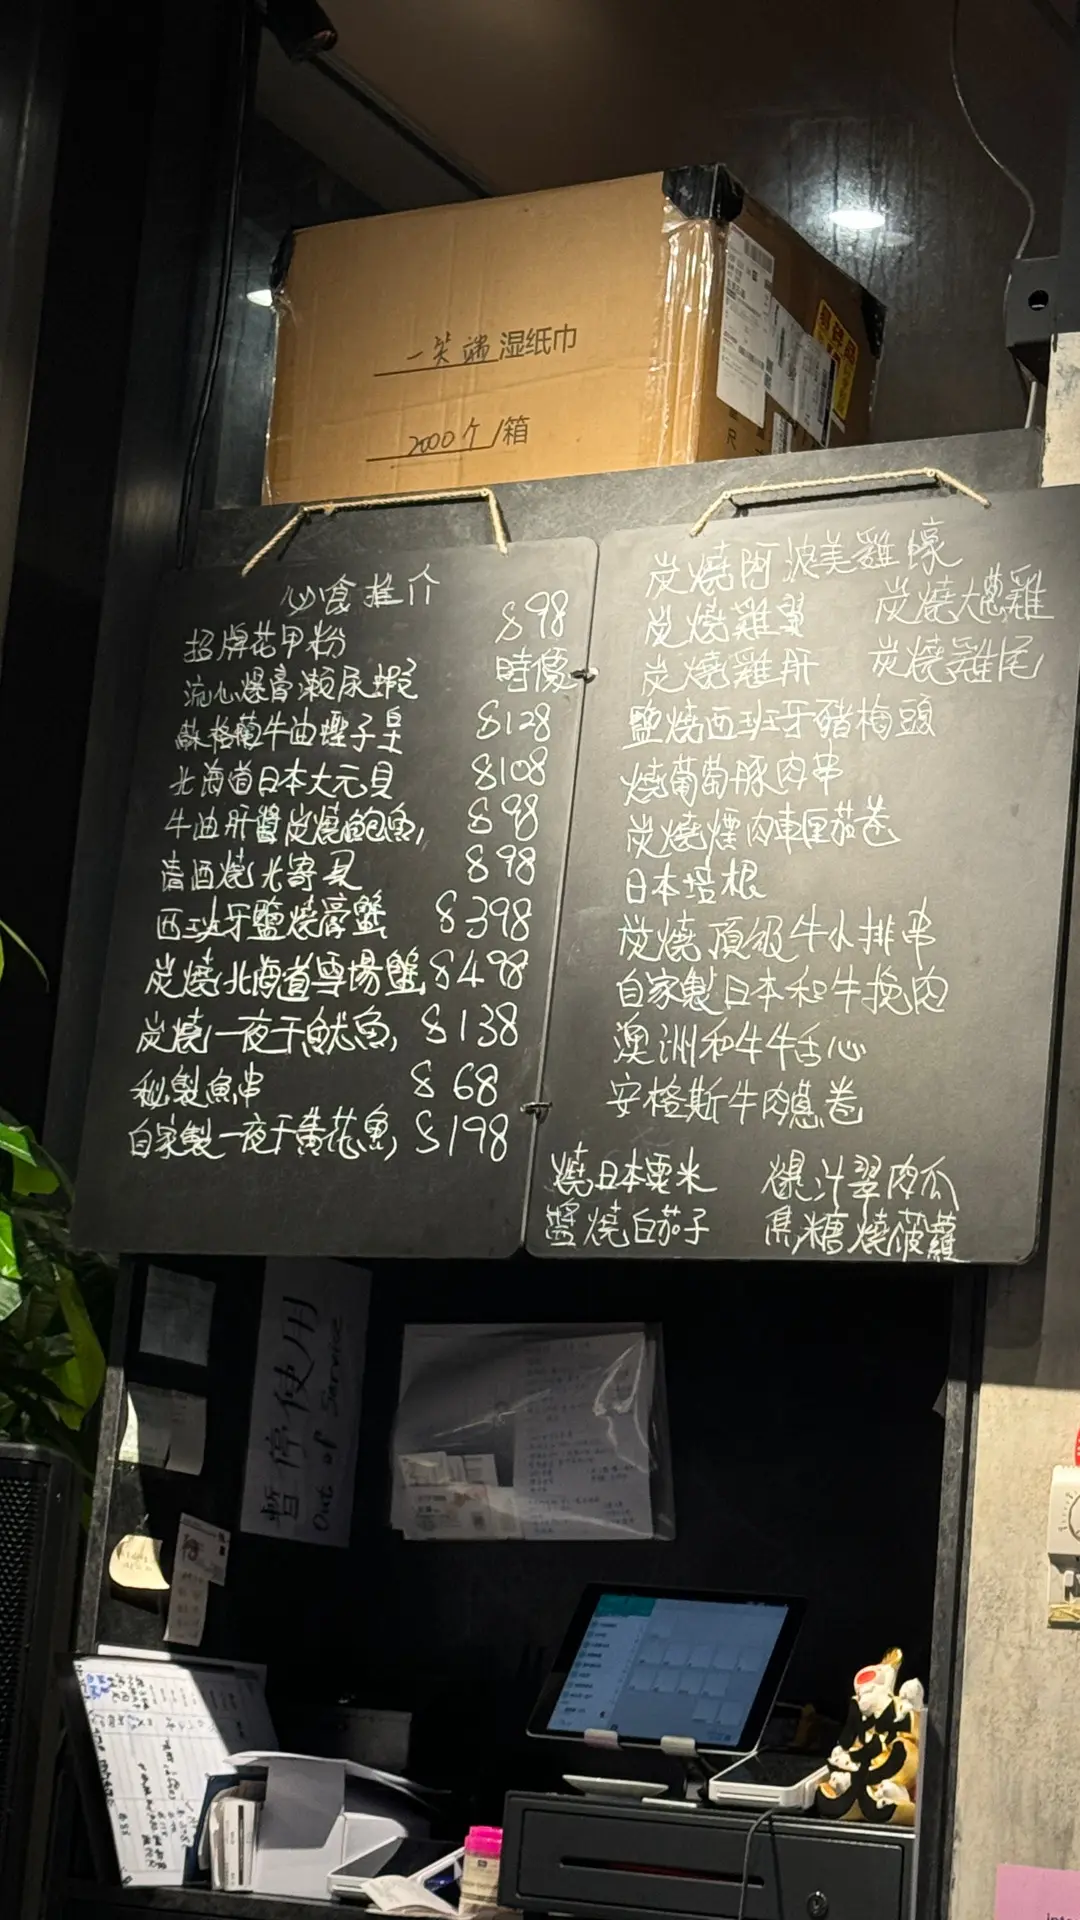 一笑端 湿纸巾
2000个/箱
必食推介
招牌花甲粉 $98
流心爆膏瀨尿蝦 時價
蘇格蘭牛油蟶子皇 $128
北海道日本大元貝 $108
牛油肝醬炭燒鮑魚 $98
清酒燒北寄貝 $98
西班牙鹽燒膏蟹 $398
炭燒北海道雪場蟹 $498
炭燒一夜干魷魚 $138
秘製魚串 $68
自家製一夜干黃花魚 $198
炭燒阿波美雞蠔
炭燒雞翼 炭燒大蔥雞
炭燒雞肝 炭燒雞尾
鹽燒西班牙豬梅頭
燒葡萄豚肉串
炭燒煙肉車厘茄卷
日本培根
炭燒頂級牛小排串
自家製日本和牛挽肉
澳洲和牛牛舌心
安格斯牛肉蔥卷
燒日本粟米 爆汁翠肉瓜
醬燒白茄子 焦糖燒菠蘿
暫停使用
Out of Service
笑